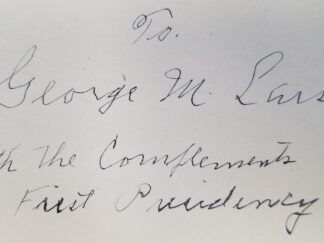 To.
George M. Lars
th the Complements
First Presidency